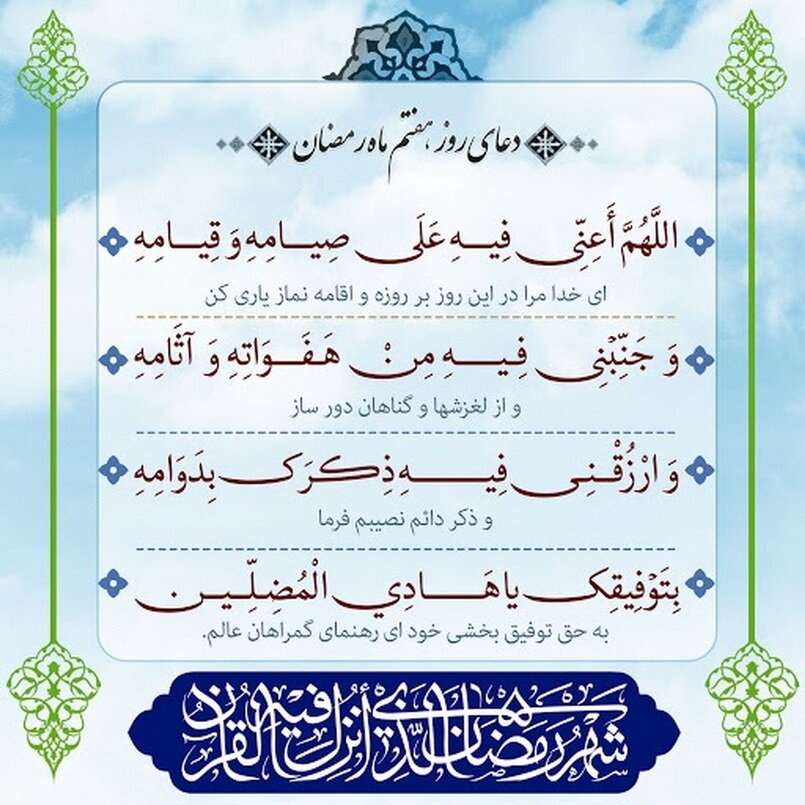 دعای روز هفتم ماه رمضان
اللَّهُمَّ أَعِنِّی فِیهِ عَلَی صِیامِهِ وَ قِیامِهِ
ای خدا مرا در این روز بر روزه و اقامه نماز یاری کن
وَ جَنِّبْنِی فِیهِ مِنْ هَفَوَاتِهِ وَ آثَامِهِ
و از لغزشها و گناهان دور ساز
وَ ارْزُقْنِی فِیهِ ذِکْرَکَ بِدَوَامِهِ
و ذکر دائم نصیبم فرما
بِتَوْفِیقِکَ یا هَادِي الْمُضِلِّینَ
به حق توفیق بخشی خود ای رهنمای گمراهان عالم.
شَهْرُ رَمَضَانَ الَّذِي أُنْزِلَ فِيهِ الْقُرْآنُ